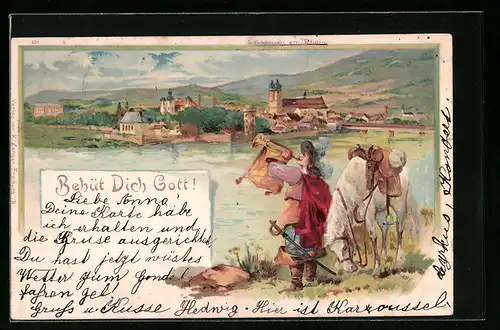 Säckingen am Rhein
Behüt Dich Gott!
Liebe Anna!
Deine Karte habe
ich erhalten und
die Kruse ausgerichtet
Du hast jetzt wüstes
Wetter zum Gondel
fafren gel.
Gruss u Kusse Hedwig - Hier ist Karzoussel,
Zyrkus, Konzert.